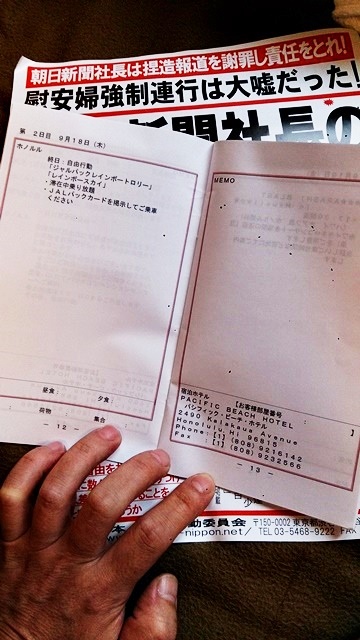 朝日新聞社長は捏造報道を謝罪し責任をとれ!
慰安婦強制連行は大嘘だった!
新聞社長の
第 2日目 9月18日(木)
ホノルル
終日:自由行動
「ジャルパックレインボートロリー」
「レインボースカイ」
・滞在中乗り放題
・JALパックカードを掲示してご乗車
ください
昼食: 夕食:
荷物: 集合:
— 12 —
MEMO
宿泊ホテル 【お客様部屋番号 : 】
PACIFIC BEACH HOTEL
パシフィック・ビーチ・ホテル
2490 Kalakaua Avenue
Honolulu, HI 96815
Phone:[1] (808) 9216142
Fax :[1] (808) 9232566
— 13 —
動委員会 〒150-0002 東京都
nippon.net/ TEL 03-5468-9222 FAX